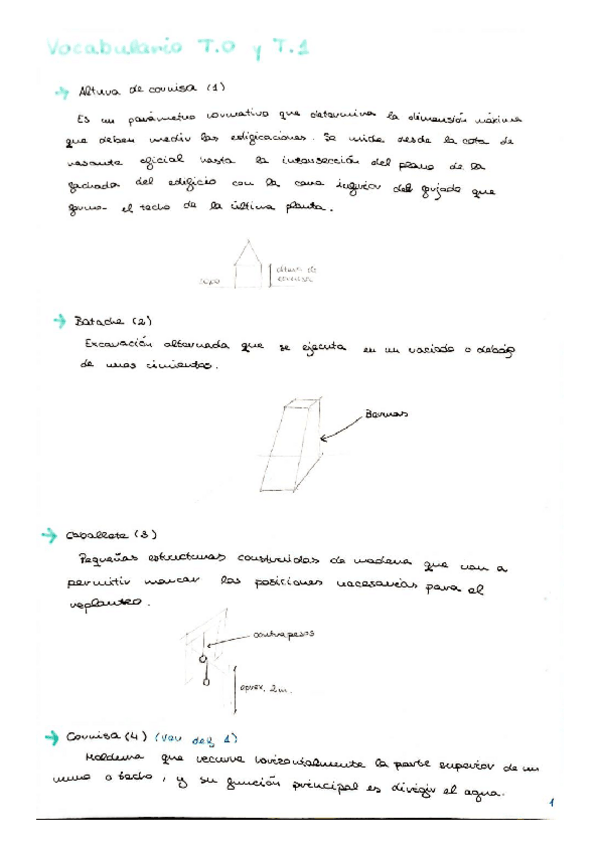 Vocabulario T.0 y T.1
→ Altura de cornisa (1)
Es un parámetro normativo que determina la dimensión máxima
que deben medir las edificaciones. Se mide desde la cota de
rasante oficial hasta la intersección del plano de la
fachada del edificio con la cara inferior del forjado que
forma el techo de la última planta.
altura de
cornisa
→ Batache (2)
Excavación alternada que se ejecuta en un vaciado o debajo
de unos cimientos.
Bermas
→ Caballete (3)
Pequeñas estructuras construidas de madera que van a
permitir marcar las posiciones necesarias para el
replanteo.
contrapesos
aprox. 2m.
→ Cornisa (4) (Ver def 1)
Moldura que recorre horizontalmente la parte superior de un
muro o techo, y su función principal es dirigir el agua.
1